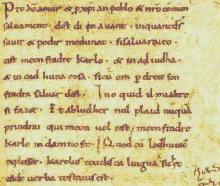 Pro dō amur & p xpian poblo & nrō comun
saluament. dist di en auant. inquantds
sauir & podir medunat. sisaluaraieo.
cist meon fradre Karlo. & in ad iudha.
& in cad huna cosa. sicū om p dreit son
fradra saluar dist. Ino quid il mialtre
si fazet. Et abludher nul plaid nūquā
prindrai qui meon uol cist. meon fradre
Karle in damno sit. Quod cū lodhuuic
explesset. karolus teudisca lingua sic ec
eade uerba testatus est.